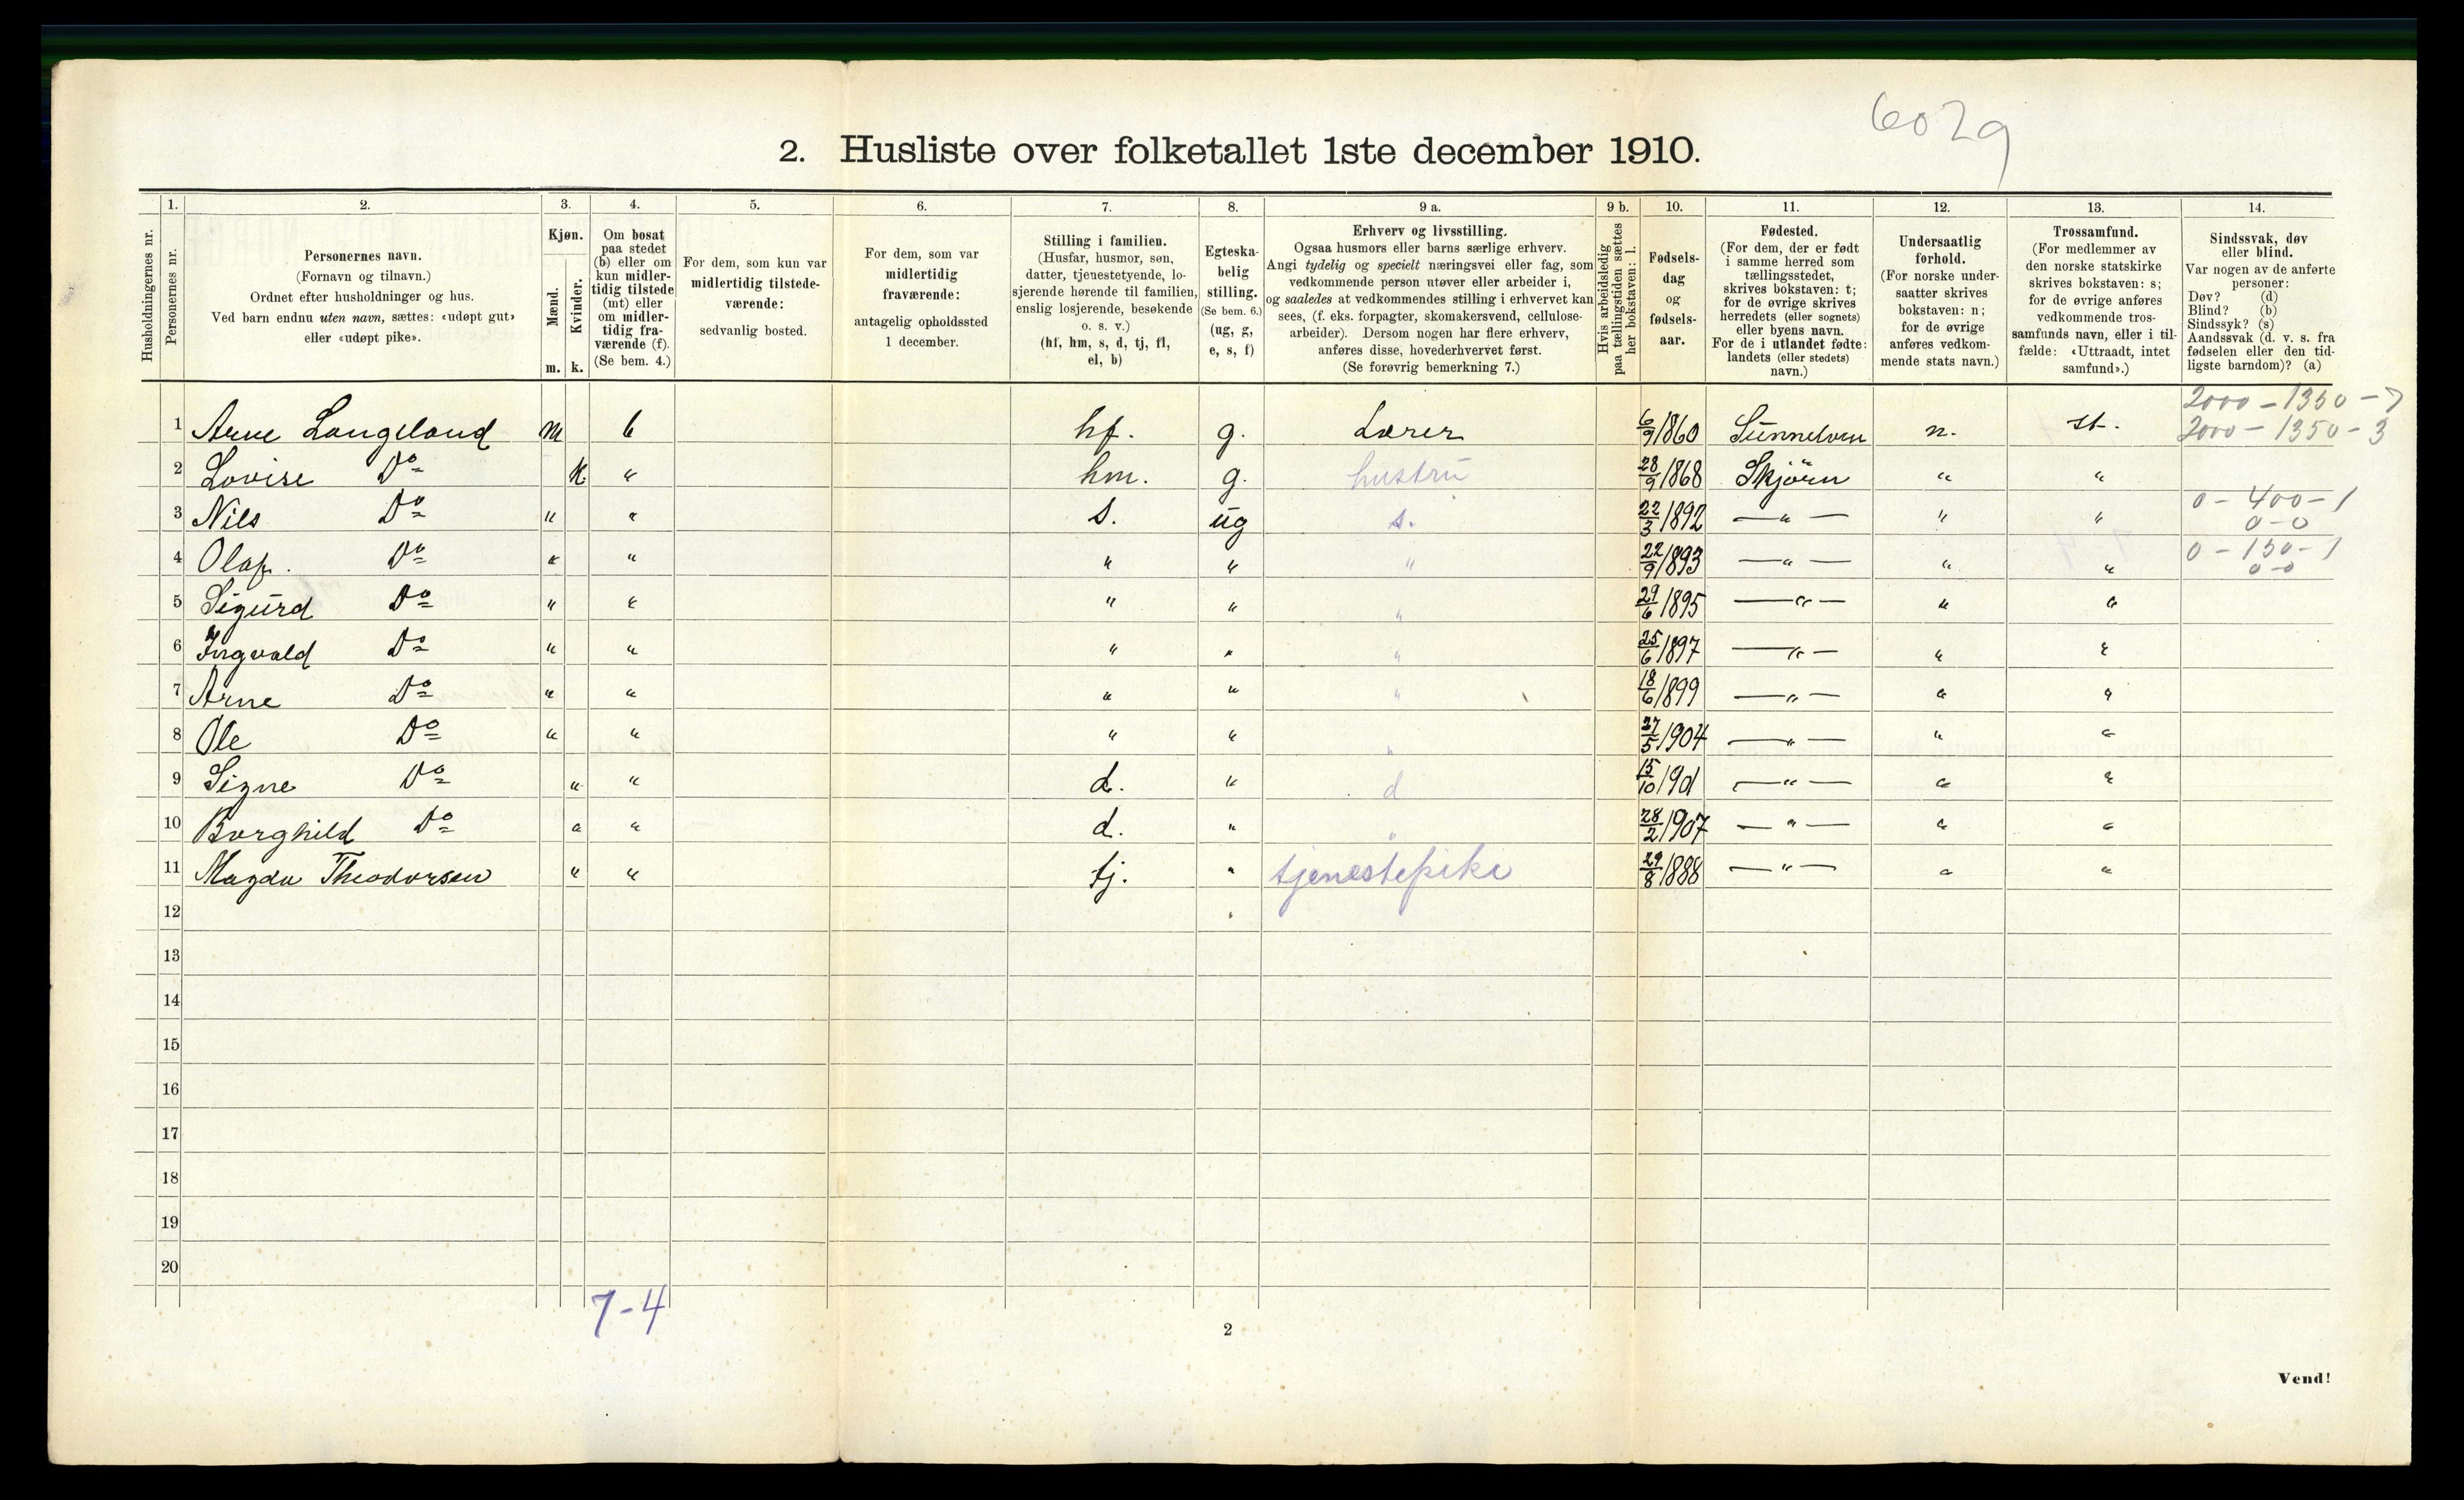 6029
2. Husliste over folketallet 1ste december 1910.
Husholdningernes nr.
1.
Personernes nr.
2.
Personernes navn.
(Fornavn og tilnavn.)
Ordnet efter husholdninger og hus.
Ved barn endnu uten navn, sættes: «udøpt gut»
eller «udøpt pike».
3.
Kjøn.
Mænd.
Kvinder.
m. k.
4.
Om bosat
paa stedet
(b) eller om
kun midler-
tidig tilstede
(mt) eller
om midler-
tidig fra-
værende (f).
(Se bem. 4.)
5.
For dem, som kun var
midlertidig tilstede-
værende:
sedvanlig bosted.
6.
For dem, som var
midlertidig
fraværende:
antagelig opholdssted
1 december.
7.
Stilling i familien.
(Husfar, husmor, søn,
datter, tjenestetyende, lo-
sjerende hørende til familien,
enslig losjerende, besøkende
o. s. v.)
(hf, hm, s, d, tj, fl,
el, b)
8.
Egteska-
belig
stilling.
(Se bem. 6.)
(ug, g,
e, s, f)
9 a.
Erhverv og livsstilling.
Ogsaa husmors eller barns særlige erhverv.
Angi tydelig og specielt næringsvei eller fag, som
vedkommende person utøver eller arbeider i,
og saaledes at vedkommendes stilling i erhvervet kan
sees, (f. eks. forpagter, skomakersvend, cellulose-
arbeider). Dersom nogen har flere erhverv,
anføres disse, hovederhvervet først.
(Se forøvrig bemerkning 7.)
9 b.
Hvis arbeidsledig
paa tællingstiden sættes
her bokstaven: l.
10.
Fødsels-
dag
og
fødsels-
aar.
11.
Fødested.
(For dem, der er født
i samme herred som
tællingsstedet,
skrives bokstaven: t;
for de øvrige skrives
herredets (eller sognets)
eller byens navn.
For de i utlandet fødte:
landets (eller stedets)
navn.)
12.
Undersaatlig
forhold.
(For norske under-
saatter skrives
bokstaven: n;
for de øvrige
anføres vedkom-
mende stats navn.)
13.
Trossamfund.
(For medlemmer av
den norske statskirke
skrives bokstaven: s;
for de øvrige anføres
vedkommende tros-
samfunds navn, eller i til-
fælde: «Uttraadt, intet
samfund».)
14.
Sindssvak, døv
eller blind.
Var nogen av de anførte
personer:
Døv? (d)
Blind? (b)
Sindssyk? (s)
Aandssvak (d. v. s. fra
fødselen eller den tid-
ligste barndom)? (a)
2000 - 1350 - 7
1 Arne Langeland m b hf. g. Lærer 6/9 1860 Sunnelven n. st. 2000 - 1350 - 3
2 Lovise Do k " hm. g. hustru 28/9 1868 Skjörn " "
3 Nils Do " " s. ug s. 22/3 1892 — " — " " 0 - 400 - 1
0 - 0
4 Olaf. Do " " " " " 22/9 1893 — " — " " 0 - 150 - 1
0 - 0
5 Sigurd Do " " " " " 29/6 1895 — " — " "
6 Ingvald Do " " " " " 25/6 1897 — " — " "
7 Arne Do " " " " " 18/6 1899 — " — " "
8 Ole Do " " " " " 27/5 1904 — " — " "
9 Signe Do " " d. " d 15/10 1901 — " — " "
10 Borghild Do " " d. " " 28/2 1907 — " — " "
11 Magda Theodorsen " " tj. " tjenestepike 29/8 1888 — " — " "
12
13
14
15
16
17
18
19
20
7 - 4
2
Vend!